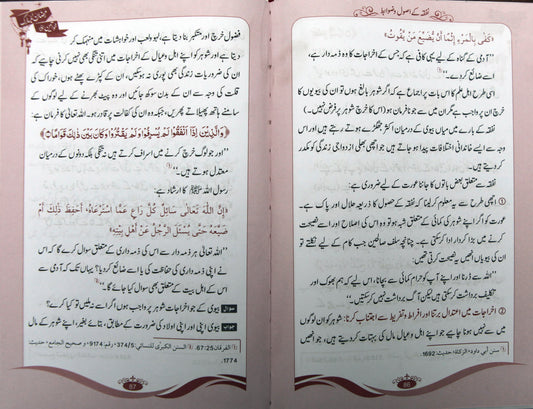 نفقہ کے اصول و ضوابط
«كَفَى بِالْمَرْءِ إِثْمًا أَنْ يُضَيِّعَ مَنْ يَقُوتُ»
’’آدمی کے گناہ کے لیے یہی کافی ہے کہ جس کے اخراجات کا وہ ذمہ دار ہے،
اسے ضائع کر دے۔‘‘
اسی طرح اہل علم کا اس بات پر اجماع ہے کہ اگر شوہر بالغ ہوں تو ان کی بیویوں کا
خرچ ان پر واجب ہے مگر ان میں سے جو نافرمان ہو (اس کا خرچ شوہر پر فرض نہیں۔)
نفقہ کے بارے میں میاں بیوی کے درمیان اکثر جھگڑے ہوتے رہتے ہیں اور
اس سے ایسے خاندانی اختلافات پیدا ہو جاتے ہیں جو اچھی بھلی ازدواجی زندگی کو مکدر
کر دیتے ہیں۔
نفقہ سے متعلق بعض باتوں کا جاننا عورت کے لیے ضروری ہے:
① اچھی طرح سے یہ معلوم کر لینا کہ نفقہ کے حصول کا ذریعہ حلال اور پاک ہے۔
عورت کو اگر اپنے شوہر کی کمائی کے متعلق شبہ ہو تو وہ اس کی اصلاح اور اسے نصیحت
کرنے میں بڑا کردار ادا کر سکتی ہے۔ چنانچہ سلف صالحین جب کام کے لیے نکلتے تو
ان کی بیویاں انھیں یہ نصیحت کرتی تھیں:
’’اللہ سے ڈرنا اور اپنے آپ کو حرام کمائی سے بچانا، اس لیے کہ ہم بھوک اور
تکلیف برداشت کر سکتی ہیں لیکن آگ برداشت نہیں کر سکتیں۔‘‘
② اخراجات میں اعتدال برتنا اور افراط و تفریط سے اجتناب کرنا: شوہر کو ان لوگوں
میں سے نہیں ہونا چاہیے جو اپنے اہل و عیال مال کی بہتات کر دیتے ہیں، جو انھیں
① سنن أبي داود، الزكاة، حديث: 1692.
86
فضول خرچ اور متکبر بنا دیتا ہے، لہو و لعب اور خواہشات میں منہمک کر
دیتا ہے اور شوہر کو اپنے اہل و عیال کے اخراجات میں اتنی تنگی بھی نہیں کرنی چاہیے کہ
ان کی ضروریات زندگی بھی پوری نہ ہو سکیں، ان کے کپڑے پھٹے ہوں، خوراک کی
قلت کی وجہ سے ان کے بدن سوکھ جائیں اور وہ پیٹ بھرنے کے لیے لوگوں کے
سامنے ہاتھ پھیلاتے پھریں، جبکہ وہ ان کی کفالت پر قادر ہو۔ اللہ تعالیٰ کا فرمان ہے:
﴿وَالَّذِينَ إِذَا أَنْفَقُوا لَمْ يُسْرِفُوا وَلَمْ يَقْتُرُوا وَكَانَ بَيْنَ ذَٰلِكَ قَوَامًا﴾
’’اور جو لوگ خرچ کرنے میں اسراف کرتے ہیں نہ تنگی بلکہ دونوں کے درمیان
معتدل ہوتے ہیں۔‘‘①
رسول اللہ ﷺ کا ارشاد ہے:
«إِنَّ اللَّهَ تَعَالَى سَائِلٌ كُلَّ رَاعٍ عَمَّا اسْتَرْعَاهُ: أَحَفِظَ ذَلِكَ أَمْ
ضَيَّعَهُ حَتَّى يُسْئَلَ الرَّجُلُ عَنْ أَهْلِ بَيْتِهِ»
’’اللہ تعالیٰ ہر ذمہ دار سے اس کی ذمہ داری کے متعلق سوال کرے گا کہ اس
نے اپنی ذمہ داری کی حفاظت کی یا اسے ضائع کر دیا؟ یہاں تک کہ آدمی سے
اس کے اہل بیت کے متعلق بھی سوال کیا جائے گا۔‘‘②
سوال بیوی کے جو اخراجات شوہر پر واجب ہوں اگر اسے نہ ملیں تو کیا کرے؟
جواب بیوی کو اپنی اور اپنی اولاد کی ضرورت کے مطابق، بتائے بغیر، اپنے شوہر کے مال
① الفرقان 67:25. ② السنن الكبرى للنسائي: 374/5، رقم: 9174، و صحيح الجامع، حديث:
1774.
87